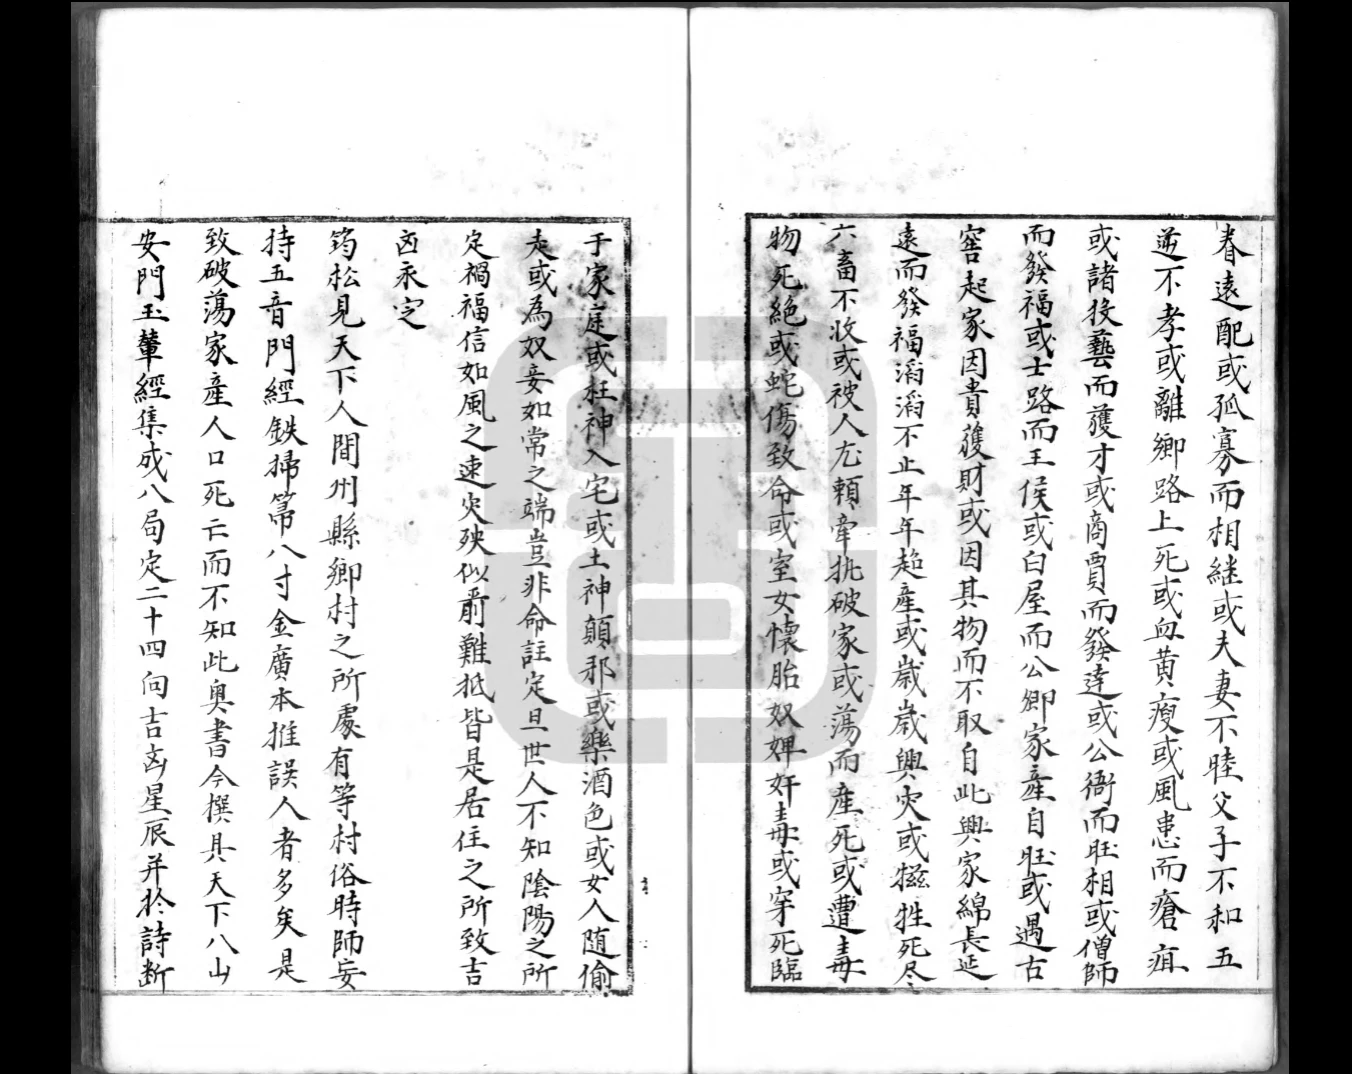 眷遠配或孤寡而相継或夫妻不睦父子不和五
逆不孝或離鄉路上死或血黄瘦或風患而瘡疽
或諸技藝而獲才或商賈而發達或公衙而旺相或僧師
而發福或士路而王侯或白屋而公卿家産自旺或遇古
窖起家因貴獲財或因其物而不取自此興家綿長延
遠而發福滔滔不止年年起産或歳歳興灾或牲死尽
六畜不收或被人尤賴牽扯破家或蕩而産死或遭毒
物死絶或蛇傷致命或室女懐胎奴婢奸毒或穽死臨
于家庭或枉神入宅或土神顛邪或樂酒色或女人随偷
走或為奴妾如常之端豈非命註定旦世人不知陰陽之所
定禍福信如風之速灾殃似箭難抵皆是居住之所致吉
凶永定
筠松見天下人間州縣鄉村之所處有等村俗時師妄
持五音門經鉄掃箒八寸金廣本推誤人者多矣是
致破蕩家産人口死亡而不知此奥書今撰具天下八山
安門玉輦經集成八局定二十四向吉凶星辰并於詩断